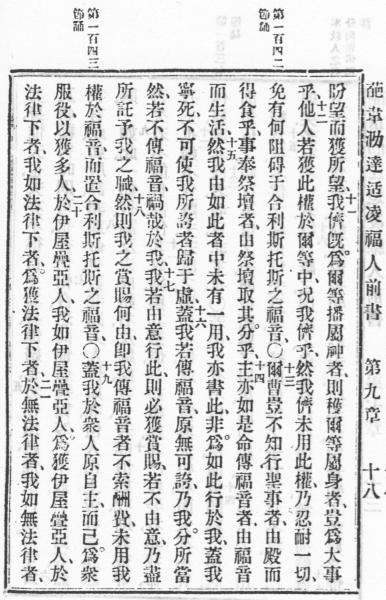 葩韋泐達适凌福人前書 第九章 十八
第一百四二
節誦
第一百四三
節誦
盼望而獲所望十一我儕旣爲爾等播屬神者則穫爾等屬身者豈爲大事
乎十二他人若獲此權於爾等中況我儕乎然我儕未用此權乃忍耐一切
免有何阻碍于合利斯托斯之福音〇十三爾曹豈不知行聖事者由殿而
得食乎事奉祭壇者由祭壇取其分乎十四主亦如是命傳福音者由福音
而生活十五然我由如此者中未有一用我亦書此非爲如此行於我蓋我
寧死不可使我所誇者歸于虛十六蓋我若傳福音原無可誇乃我分所當
然若不傳福音禍哉於我十七我若由意行此則必獲賞賜若不由意乃盡
所託予我之職十八然則我之賞賜何由卽我傳福音者不索酬費未用我
權於福音而置合利斯托斯之福音〇十九蓋我於衆人原自主而己爲衆
服役以獲多人二十於伊屋疊亞人我如伊屋疊亞人爲獲伊屋疊亞人於
法律下者我如法律下者爲獲法律下者二一於無法律者我如無法律者